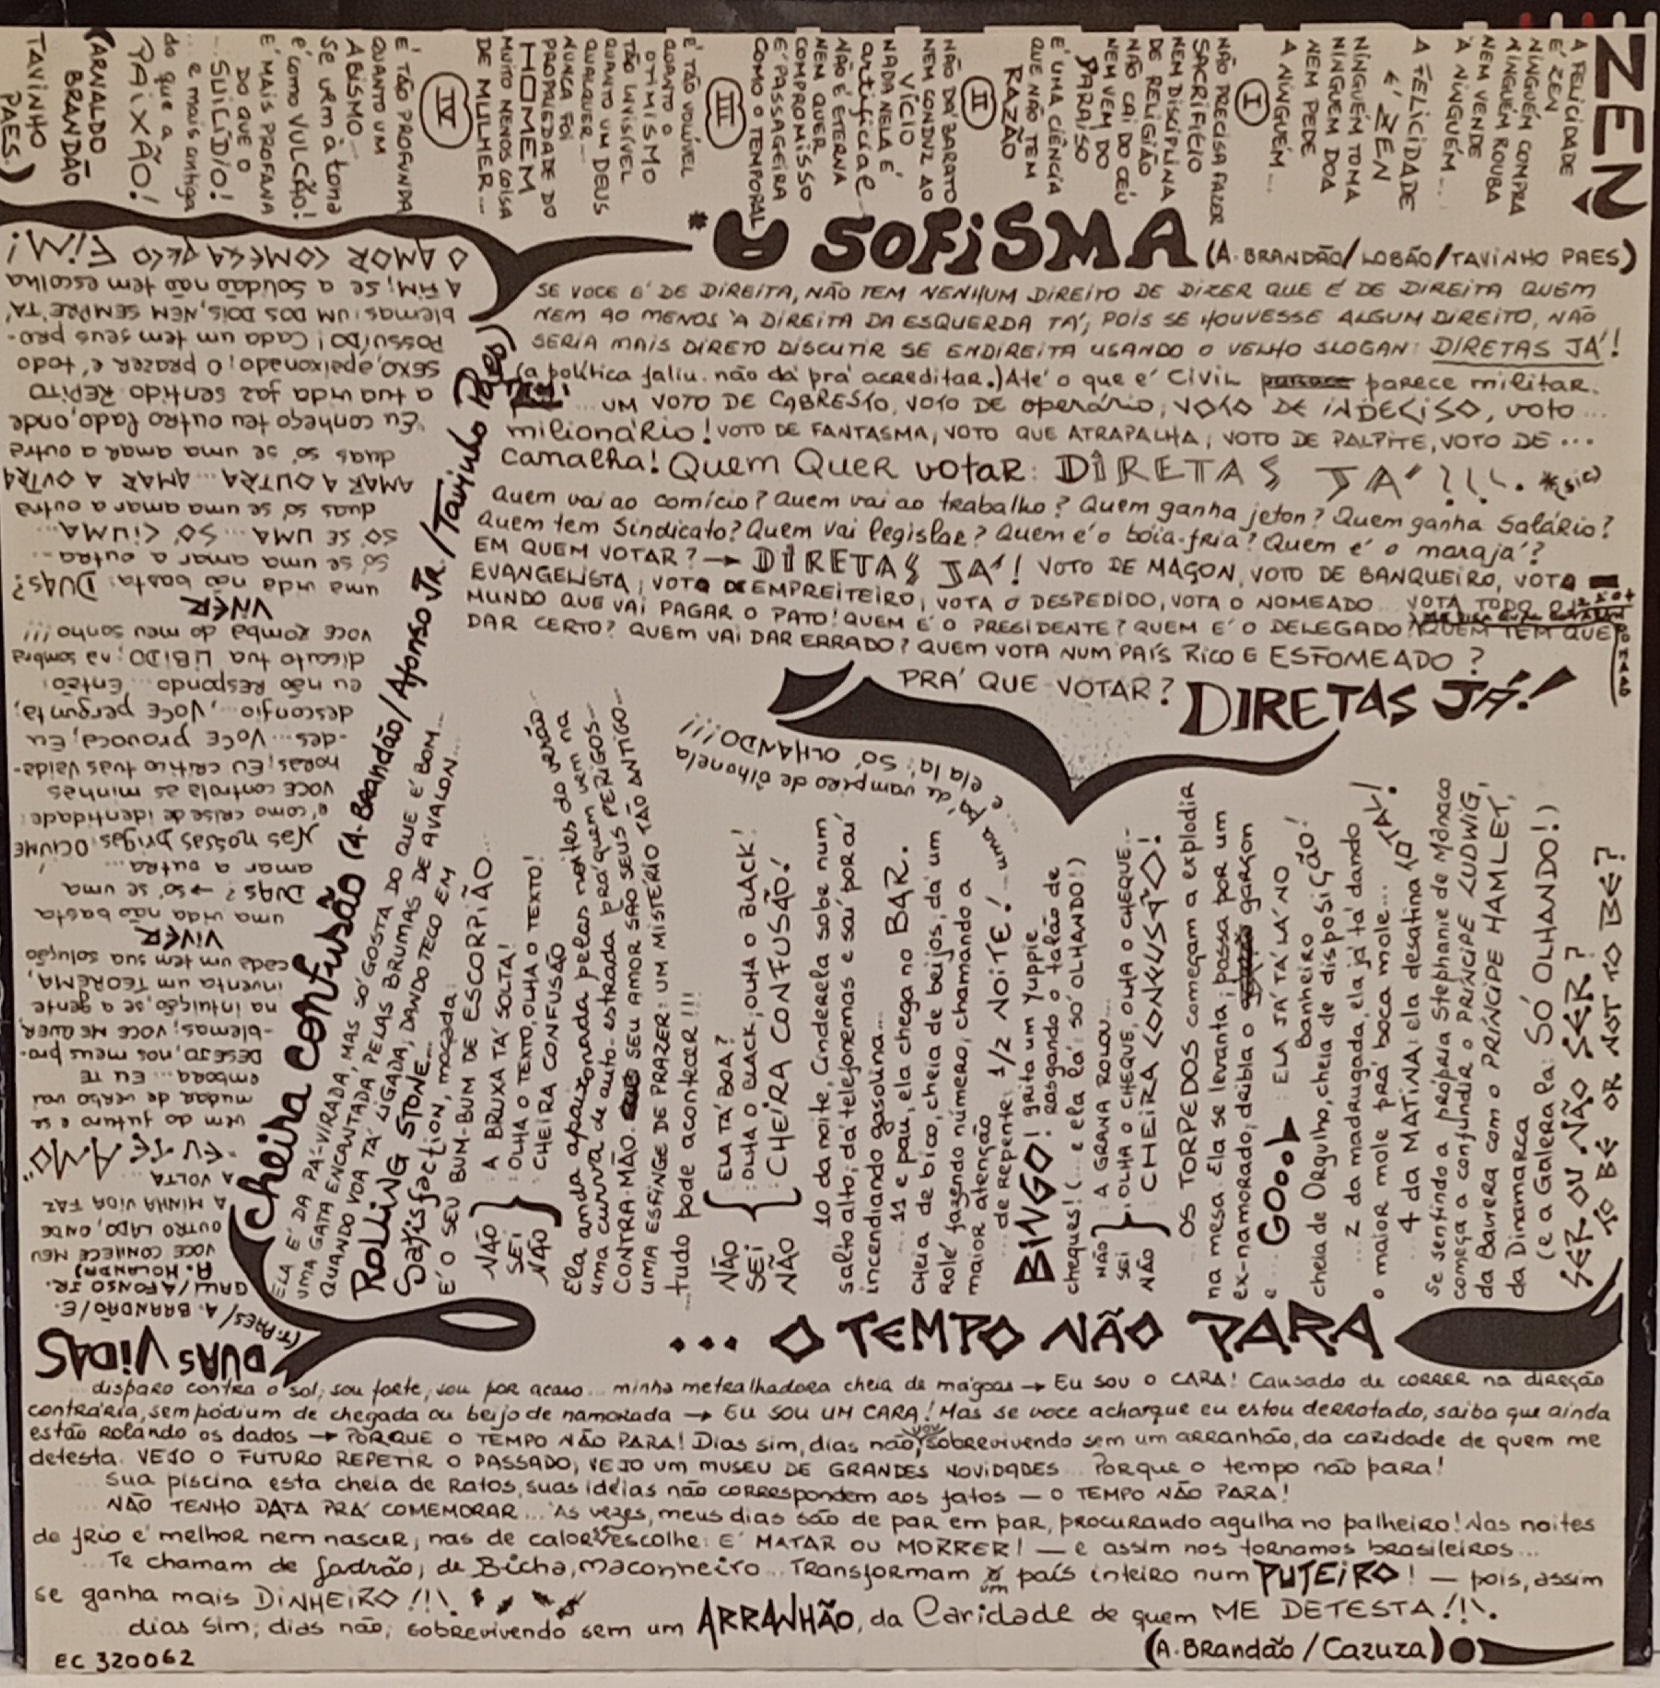 ZEN
A FELICIDADE
É ZEN,
NINGUÉM COMPRA
NINGUÉM ROUBA
NEM VENDE
À NINGUÉM...
A FELICIDADE
É ZEN
NINGUÉM TOMA
NINGUEM DOA
NEM PEDE
A NINGUÉM...
I
NÃO PRECISA FAZER
SACRIFÍCIO
NEM DISCIPLINA
DE RELIGIÃO
NÃO CAI DO CÉU
NEM VEM DO
PARAÍSO
É UMA CIÊNCIA
QUE NÃO TEM
RAZÃO
II
NÃO DÁ BARATO
NEM CONDUZ AO
VÍCIO
NADA NELA É
artificial...
NÃO É ETERNA
NEM QUER
COMPROMISSO
É PASSAGEIRA
COMO O TEMPORAL
III
É TÃO VOLÚVEL
QUANTO O
OTIMISMO
TÃO INVISÍVEL
QUANTO UM DEUS
QUALQUER...
NUNCA FOI
PROPRIEDADE DO
HOMEM
MUITO MENOS COISA
DE MULHER...
IV
É TÃO PROFUNDA
QUANTO UM
ABISMO...
Se vem à tona
é como VULCÃO!
É MAIS PROFANA
DO QUE O
SUICÍDIO!
... e mais antiga
do que a
PAIXÃO!
(ARNALDO
BRANDÃO
TAVINHO
PAES.)
* O SOFISMA (A. BRANDÃO/LOBÃO/TAVINHO PAES)
SE VOCE É DE DIREITA, NÃO TEM NENHUM DIREITO DE DIZER QUE É DE DIREITA QUEM
NEM AO MENOS À DIREITA DA ESQUERDA TÁ; POIS SE HOUVESSE ALGUM DIREITO, NÃO
SERIA MAIS DIRETO DISCUTIR SE ENDIREITA USANDO O VELHO SLOGAN: DIRETAS JÁ!
(a política faliu. não dá prá acreditar.) Até o que é Civil parece militar.
... UM VOTO DE CABRESTO, VOTO DE operário; VOTO DE INDECISO, voto...
milionário! VOTO DE FANTASMA, VOTO QUE ATRAPALHA; VOTO DE PALPITE, VOTO DE...
canalha! Quem Quer votar: DIRETAS JÁ?!!. *(sic)
Quem vai ao comício? Quem vai ao trabalho? Quem ganha jeton? Quem ganha Salário?
Quem tem Sindicato? Quem vai legislar? Quem é o bóia-fria? Quem é o marajá?
EM QUEM VOTAR? → DIRETAS JÁ! VOTO DE MAÇON, VOTO DE BANQUEIRO, VOTO
EVANGELISTA; VOTO DE EMPREITEIRO; VOTA O DESPEDIDO, VOTA O NOMEADO... VOTA TODO
MUNDO QUE VAI PAGAR O PATO! QUEM É O PRESIDENTE? QUEM É O DELEGADO? QUEM TEM QUE
DAR CERTO? QUEM VAI DAR ERRADO? QUEM VOTA NUM PAÍS RICO E ESFOMEADO?
PRÁ QUE VOTAR? DIRETAS JÁ!
Cheira Confusão (A. Brandão/Afonso Jr./Tavinho Paes)
ELA É DA PÁ-VIRADA, MAS SÓ GOSTA DO QUE É BOM...
UMA GATA ENCANTADA PELAS BRUMAS DE AVALON...
QUANDO VOA TÁ LIGADA, DANDO TECO EM
ROLLING STONE...
Satisfaction, maçada:
É O SEU BUM-BUM DE ESCORPIÃO...
NÃO } : A BRUXA TÁ SOLTA!
SEI } : OLHA O TEXTO, OLHA O TEXTO!
NÃO } : CHEIRA CONFUSÃO
Ela anda apaixonada pelas noites do verão...
uma curva de auto-estrada prá quem vem na
CONTRA-MÃO. SEU AMOR SÃO SEUS PERIGOS...
UMA ESFINGE DE PRAZER: UM MISTÉRIO TÃO ANTIGO...
...tudo pode acontecer!!!
NÃO { : ELA TÁ BOA?
SEI { : OLHA O BLACK, OLHA O BLACK!
NÃO { : CHEIRA CONFUSÃO!
10 da noite, Cinderela sobe num
salto alto; dá telefonemas e saí por aí
incendiando gasolina...
... 11 e pau, ela chega no BAR.
cheia de bico, cheia de beijos; dá um
Rolé fazendo número; chamando a
maior atenção
... de repente: 1/2 NOITE! ... uma pá de vampiro de olho nela
e ela lá: SÓ OLHANDO!!!
BINGO! grita um yuppie
rasgando o talão de
cheques! (... e ela lá: só OLHANDO!)
NÃO } : A GRANA ROLOU...
SEI } : OLHA O CHEQUE, OLHA O CHEQUE...
NÃO } : CHEIRA CONFUSÃO!
... OS TORPEDOS começam a explodir
na mesa. Ela se levanta; passa por um
ex-namorado; dribla o garçon
e... GOOOL : ELA JÁ TÁ LÁ NO
Banheiro
cheia de Orgulho, cheia de disposição!
... 2 da madrugada, ela já tá dando
o maior mole prá boca mole...
... 4 da MATINA: ela desatina TOTAL!
Se sentindo a própria Stephanie de Mônaco
começa a confundir o PRÍNCIPE LUDWIG,
da Baviera com o PRÍNCIPE HAMLET,
da Dinamarca
(e a Galera lá: SÓ OLHANDO!)
SER OU NÃO SER?
TO BE OR NOT TO BE?
DUAS VIDAS
(T. PAES/A. BRANDÃO/E.
GALLI/AFONSO JR.
A. HOLANDA)
VOCE CONHECE MEU
OUTRO LADO, ONDE
A MINHA VIDA FAZ
A VOLTA...
"EU TE AMO"
vem do futuro e se
mudar de verso vai
embora... EU TE
DESEJO, nos meus pro-
-blemas; VOCE ME QUER,
na intuição, se a gente
inventa um TEOREMA,
cada um tem sua solução
VIVER
uma vida não basta
DUAS? → só se uma
amar a outra...
Nas nossas brigas: O CIUME
é como crise de identidade:
VOCE controla as minhas
horas; EU critico tuas vaida-
-des... VOCE provoca, EU
desconfio..., VOCE pergunta,
eu não respondo... Então:
discuto tua LIBIDO; na sombra
VOCE zomba do meu sonho!!!
VIVER
uma vida não basta: DUAS?
só se uma amar a outra...
SÓ SE UMA... SÓ CIUMA...
duas só se uma amar a outra
AMAR A OUTRA... AMAR A OUTRA
duas só se uma amar a outra
Eu conheço teu outro lado, onde
a tua vida faz sentido. REPITO
SEXO, apaixonado; O prazer é, todo
POSSUÍDO! Cada um tem seus pro-
blemas: UM DOS DOIS, NEM SEMPRE TÁ,
A FIM; se a solidão não tem escolha
O AMOR COMEÇA PELO FIM!
... O TEMPO NÃO PARA
... disparo contra o sol; sou forte, sou por acaso... minha metralhadora cheia de mágoas → EU SOU O CARA! Cansado de CORRER na direção
contrária, sem pódium de chegada ou beijo de namorada → EU SOU UM CARA! Mas se voce achar que eu estou derrotado, saiba que ainda
estão Rolando os dados → PORQUE O TEMPO NÃO PARA! Dias sim, dias não, vou sobrevivendo sem um arranhão, da caridade de quem me
detesta. VEJO O FUTURO REPETIR O PASSADO; VEJO UM MUSEU DE GRANDES NOVIDADES... Porque o tempo não para!
Sua piscina esta cheia de Ratos, suas idéias não correspondem aos fatos — O TEMPO NÃO PARA!
... NÃO TENHO DATA PRÁ COMEMORAR... Às vezes, meus dias são de par em par, procurando agulha no palheiro! Nas noites
de frio é melhor nem nascer; nas de calor, escolhe: É MATAR OU MORRER! — e assim nos tornamos brasileiros...
... Te chamam de ladrão; de Bicha, maconheiro... Transformam um país inteiro num PUTEIRO! — pois, assim
se ganha mais DINHEIRO!!!
dias sim; dias não; sobrevivendo sem um ARRANHÃO, da Caridade de quem ME DETESTA!!!
(A. Brandão/Cazuza)
EC 320062